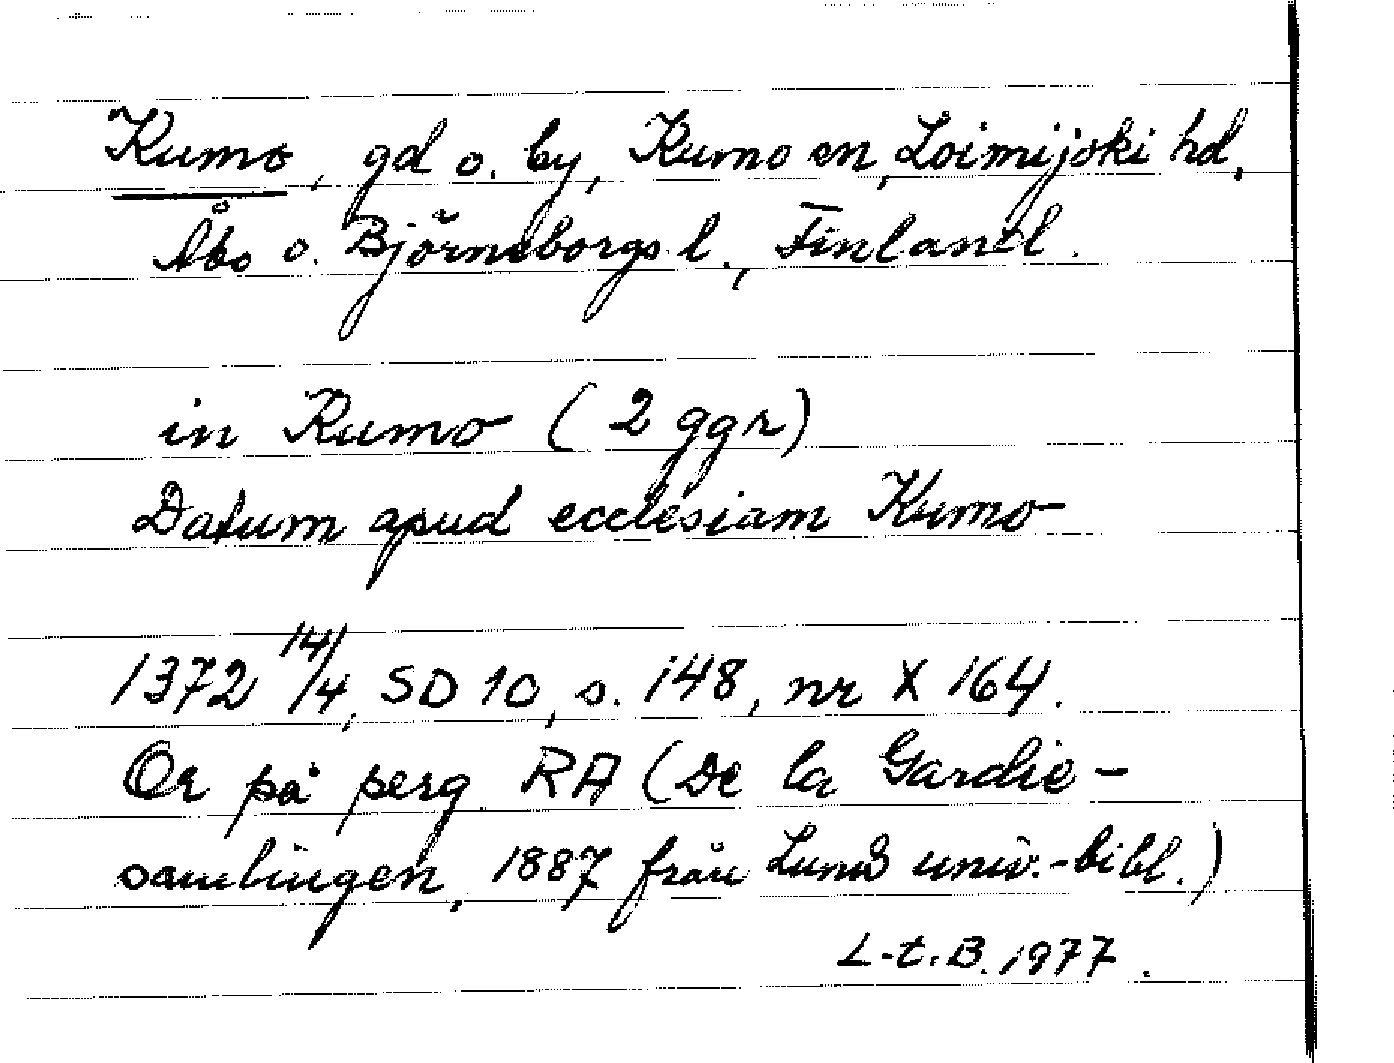 Kumo, gd o. by, Kumo sn, Loimijoki hd,
Åbo o. Björneborgs l., Finland.
in Kumo (2 ggr)
Datum apud ecclesiam Kumo
1372 14/4, SD 10, s. 148, nr X 164.
Or på perg. RA (De la Gardie-
samlingen, 1887 från Lunds univ.-bibl.)
L-t.B. 1977.